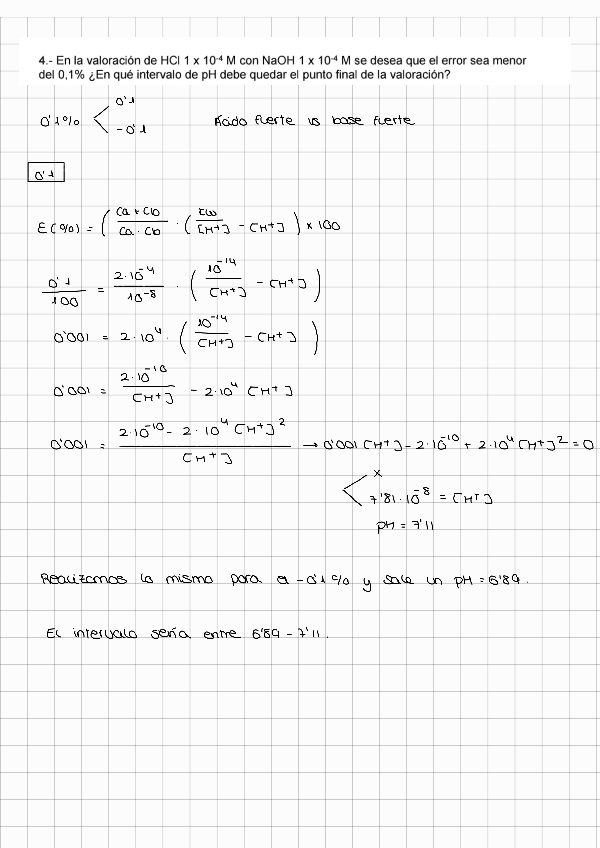 4.- En la valoración de HCl 1 x 10⁻⁴ M con NaOH 1 x 10⁻⁴ M se desea que el error sea menor
del 0,1% ¿En qué intervalo de pH debe quedar el punto final de la valoración?
0'1
0'1% < Ácido fuerte vs base fuerte
-0'1
0'1
E(%) = ( (Ca + Cb)/(Ca · Cb) · ( Kw/[H+] - [H+] ) x 100
0'1/100 = 2·10⁻⁴/10⁻⁸ · ( 10⁻¹⁴/[H+] - [H+] )
0'001 = 2·10⁴ · ( 10⁻¹⁴/[H+] - [H+] )
0'001 = 2·10⁻¹⁰/[H+] - 2·10⁴ [H+]
0'001 = (2·10⁻¹⁰ - 2·10⁴ [H+]²)/[H+] → 0'001 [H+] - 2·10⁻¹⁰ + 2·10⁴ [H+]² = 0
x
7'81·10⁻⁸ = [H+]
pH = 7'11
Realizamos lo mismo para el -0'1% y sale un pH = 6'89.
El intervalo sería entre 6'89 - 7'11.